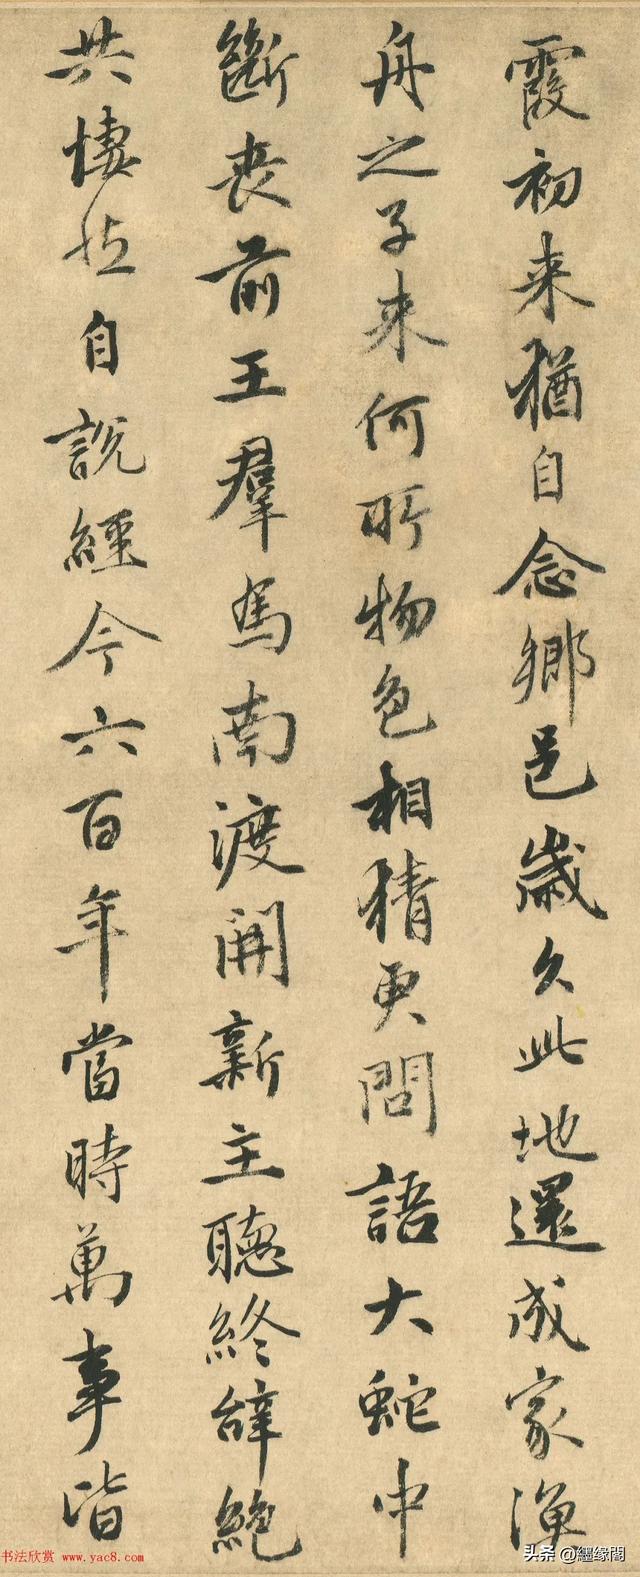 霞初来猶自念鄉邑歲久此地還成家漁
舟之子来何所物色相猜更問語大蛇中
斷喪前王羣馬南渡開新主聽終辭絶
共悽然自說經今六百年當時萬事皆
书法欣赏 www.yac8.com
头条 @缘阁